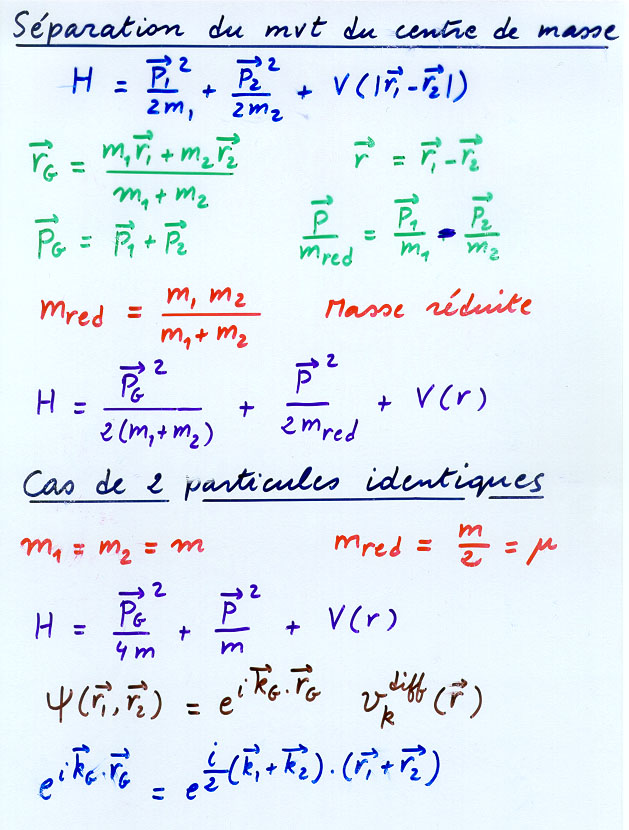 Séparation du mvt du centre de masse
H = \frac{\vec{P_1}^2}{2m_1} + \frac{\vec{P_2}^2}{2m_2} + V(|\vec{r_1}-\vec{r_2}|)
\vec{r}_G = \frac{m_1\vec{r_1}+m_2\vec{r_2}}{m_1+m_2}   \vec{r} = \vec{r_1}-\vec{r_2}
\vec{P}_G = \vec{P_1}+\vec{P_2}   \frac{\vec{P}}{m_{red}} = \frac{\vec{P_1}}{m_1} - \frac{\vec{P_2}}{m_2}
m_{red} = \frac{m_1 m_2}{m_1+m_2}   Masse réduite
H = \frac{\vec{P_G}^2}{2(m_1+m_2)} + \frac{\vec{P}^2}{2m_{red}} + V(r)
Cas de 2 particules identiques
m_1 = m_2 = m   m_{red} = \frac{m}{2} = μ
H = \frac{\vec{P_G}^2}{4m} + \frac{\vec{P}^2}{m} + V(r)
Ψ(\vec{r_1},\vec{r_2}) = e^{i\vec{k}_G.\vec{r}_G} v_k^{diff}(\vec{r})
e^{i\vec{k}_G.\vec{r}_G} = e^{\frac{i}{2}(\vec{k_1}+\vec{k_2}).(\vec{r_1}+\vec{r_2})}